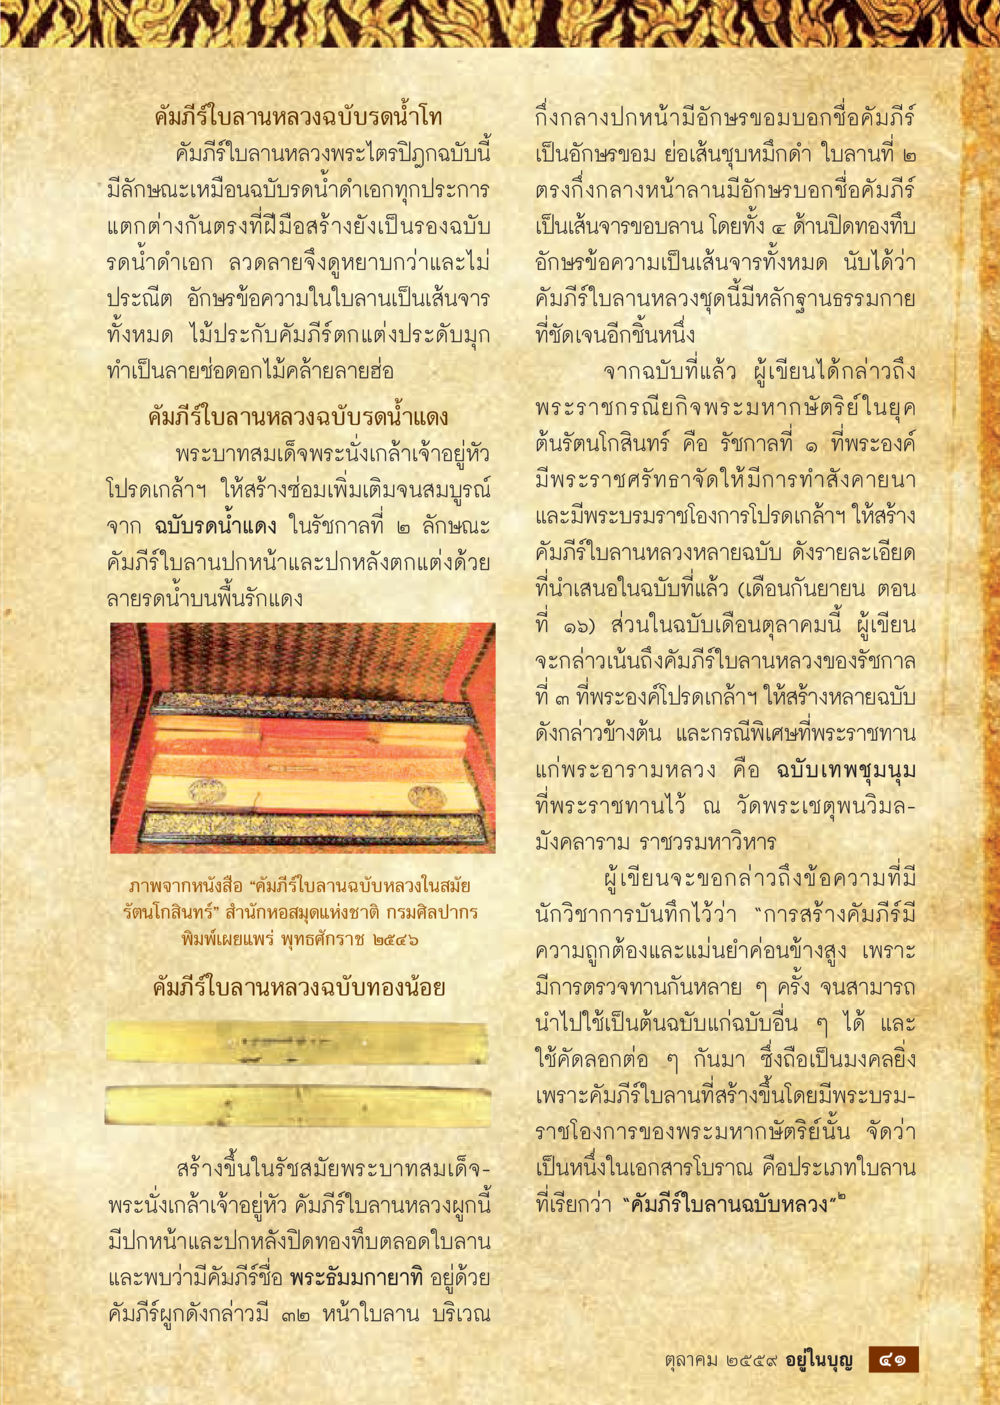 คัมภีร์ใบลานหลวงฉบับรดน้ำโท
คัมภีร์ใบลานหลวงพระไตรปิฎกฉบับนี้
มีลักษณะเหมือนฉบับรดน้ำดำเอกทุกประการ
แตกต่างกันตรงที่ฝีมือสร้างยังเป็นรองฉบับ
รดน้ำดำเอก ลวดลายจึงดูหยาบกว่าและไม่
ประณีต อักษรข้อความในใบลานเป็นเส้นจาร
ทั้งหมด ไม้ประกับคัมภีร์ตกแต่งประดับมุก
ทำเป็นลายช่อดอกไม้คล้ายลายฮ่อ
คัมภีร์ใบลานหลวงฉบับรดน้ำแดง
พระบาทสมเด็จพระนั่งเกล้าเจ้าอยู่หัว
โปรดเกล้าฯ ให้สร้างซ่อมเพิ่มเติมจนสมบูรณ์
จาก ฉบับรดน้ำแดง ในรัชกาลที่ ๒ ลักษณะ
คัมภีร์ใบลานปกหน้าและปกหลังตกแต่งด้วย
ลายรดน้ำบนพื้นรักแดง
ภาพจากหนังสือ “คัมภีร์ใบลานฉบับหลวงในสมัย
รัตนโกสินทร์” สำนักหอสมุดแห่งชาติ กรมศิลปากร
พิมพ์เผยแพร่ พุทธศักราช ๒๕๔๖
คัมภีร์ใบลานหลวงฉบับทองน้อย
สร้างขึ้นในรัชสมัยพระบาทสมเด็จ-
พระนั่งเกล้าเจ้าอยู่หัว คัมภีร์ใบลานหลวงผูกนี้
มีปกหน้าและปกหลังปิดทองทึบตลอดใบลาน
และพบว่ามีคัมภีร์ชื่อ พระธัมมกายาทิ อยู่ด้วย
คัมภีร์ผูกดังกล่าวมี ๓๒ หน้าใบลาน บริเวณ
กึ่งกลางปกหน้ามีอักษรขอมบอกชื่อคัมภีร์
เป็นอักษรขอม ย่อเส้นชุบหมึกดำ ใบลานที่ ๒
ตรงกึ่งกลางหน้าลานมีอักษรบอกชื่อคัมภีร์
เป็นเส้นจารขอบลาน โดยทั้ง ๔ ด้านปิดทองทึบ
อักษรข้อความเป็นเส้นจารทั้งหมด นับได้ว่า
คัมภีร์ใบลานหลวงชุดนี้มีหลักฐานธรรมกาย
ที่ชัดเจนอีกชิ้นหนึ่ง
จากฉบับที่แล้ว ผู้เขียนได้กล่าวถึง
พระราชกรณียกิจพระมหากษัตริย์ในยุค
ต้นรัตนโกสินทร์ คือ รัชกาลที่ ๑ ที่พระองค์
มีพระราชศรัทธาจัดให้มีการทำสังคายนา
และมีพระบรมราชโองการโปรดเกล้าฯ ให้สร้าง
คัมภีร์ใบลานหลวงหลายฉบับ ดังรายละเอียด
ที่นำเสนอในฉบับที่แล้ว (เดือนกันยายน ตอน
ที่ ๑๖) ส่วนในฉบับเดือนตุลาคมนี้ ผู้เขียน
จะกล่าวเน้นถึงคัมภีร์ใบลานหลวงของรัชกาล
ที่ ๓ ที่พระองค์โปรดเกล้าฯ ให้สร้างหลายฉบับ
ดังกล่าวข้างต้น และกรณีพิเศษที่พระราชทาน
แก่พระอารามหลวง คือ ฉบับเทพชุมนุม
ที่พระราชทานไว้ ณ วัดพระเชตุพนวิมล-
มังคลาราม ราชวรมหาวิหาร
ผู้เขียนจะขอกล่าวถึงข้อความที่มี
นักวิชาการบันทึกไว้ว่า “การสร้างคัมภีร์มี
ความถูกต้องและแม่นยำค่อนข้างสูง เพราะ
มีการตรวจทานกันหลาย ๆ ครั้ง จนสามารถ
นำไปใช้เป็นต้นฉบับแก่ฉบับอื่น ๆ ได้ และ
ใช้คัดลอกต่อ ๆ กันมา ซึ่งถือเป็นมงคลยิ่ง
เพราะคัมภีร์ใบลานที่สร้างขึ้นโดยมีพระบรม-
ราชโองการของพระมหากษัตริย์นั้น จัดว่า
เป็นหนึ่งในเอกสารโบราณ คือประเภทใบลาน
ที่เรียกว่า “คัมภีร์ใบลานฉบับหลวง”๒
ตุลาคม ๒๕๕๙ อยู่ในบุญ ๔๑